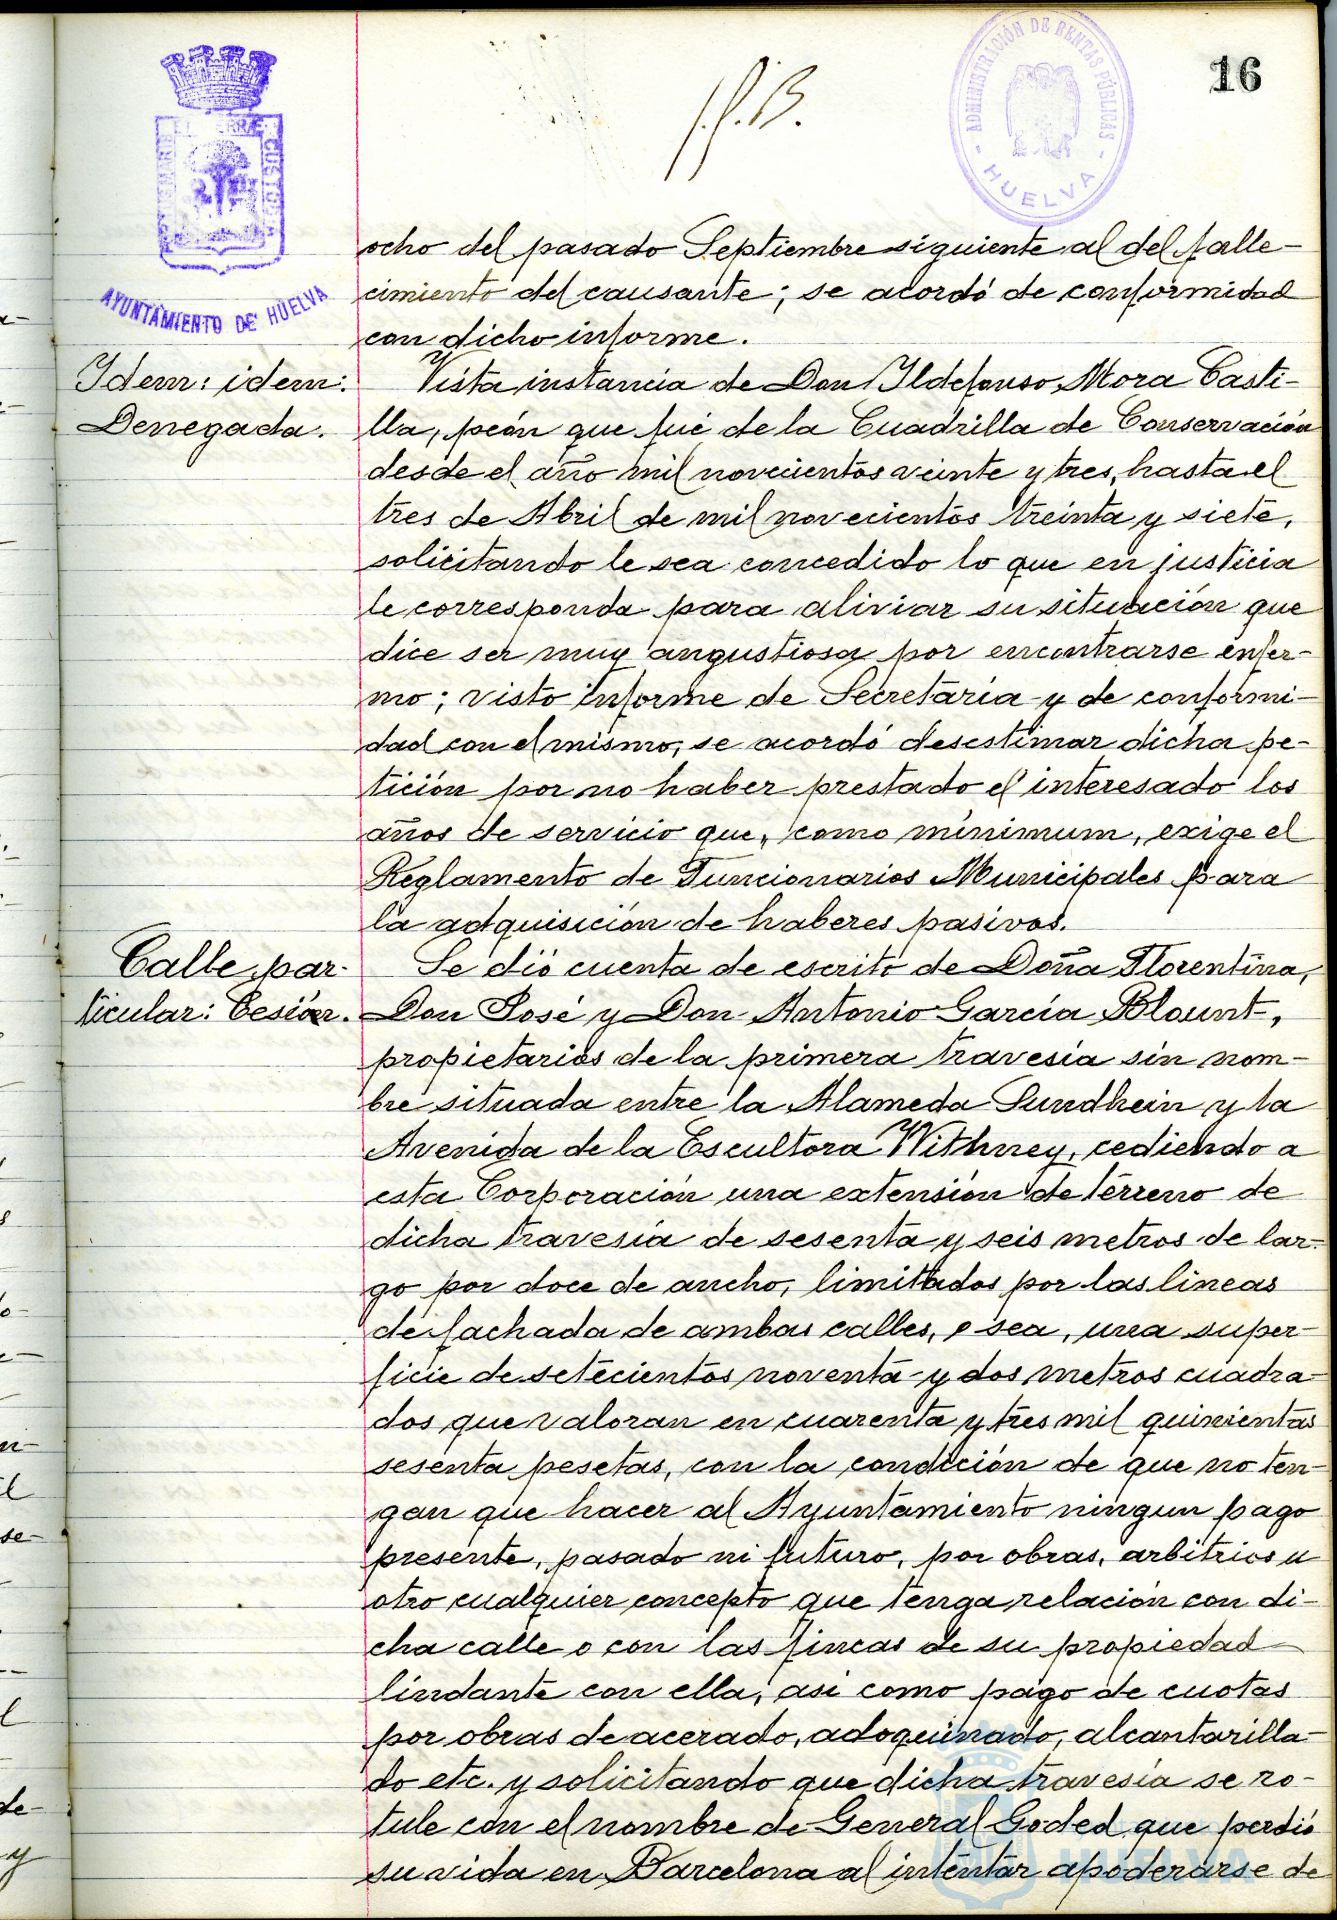 16
ADMINISTRACIÓN DE RENTAS PÚBLICAS
- HUELVA -
AYUNTAMIENTO DE HUELVA
ocho del pasado Septiembre siguiente al del falle-
cimiento del causante; se acordó de conformidad
con dicho informe.
Idem: idem:
Denegada.
Vista instancia de Don Ildefonso Mora Casti-
lla, peón que fué de la Cuadrilla de Conservación
desde el año mil novecientos veinte y tres, hasta el
tres de Abril de mil novecientos treinta y siete,
solicitando le sea concedido lo que en justicia
le corresponda para aliviar su situación que
dice ser muy angustiosa por encontrarse enfer-
mo; visto informe de Secretaría y de conformi-
dad con el mismo, se acordó desestimar dicha pe-
tición por no haber prestado el interesado los
años de servicio que, como mínimum, exige el
Reglamento de Funcionarios Municipales para
la adquisición de haberes pasivos.
Calle par-
ticular: Cesión.
Se dió cuenta de escrito de Doña Florentina,
Don José y Don Antonio García Blount,
propietarios de la primera travesía sin nom-
bre situada entre la Alameda Sundhein y la
Avenida de la Escultora Withney, cediendo a
esta Corporación una extensión de terreno de
dicha travesía de sesenta y seis metros de lar-
go por doce de ancho, limitados por las líneas
de fachada de ambas calles, o sea, una super-
ficie de setecientos noventa y dos metros cuadra-
dos que valoran en cuarenta y tres mil quinientas
sesenta pesetas, con la condición de que no ten-
gan que hacer al Ayuntamiento ningun pago
presente, pasado ni futuro, por obras, arbitrios u
otro cualquier concepto que tenga relación con di-
cha calle o con las fincas de su propiedad
lindante con ella, asi como pago de cuotas
por obras de acerado, adoquinado, alcantarilla-
do etc. y solicitando que dicha travesía se ro-
tule con el nombre de General Goded que perdió
su vida en Barcelona al intentar apoderarse de
HUELVA